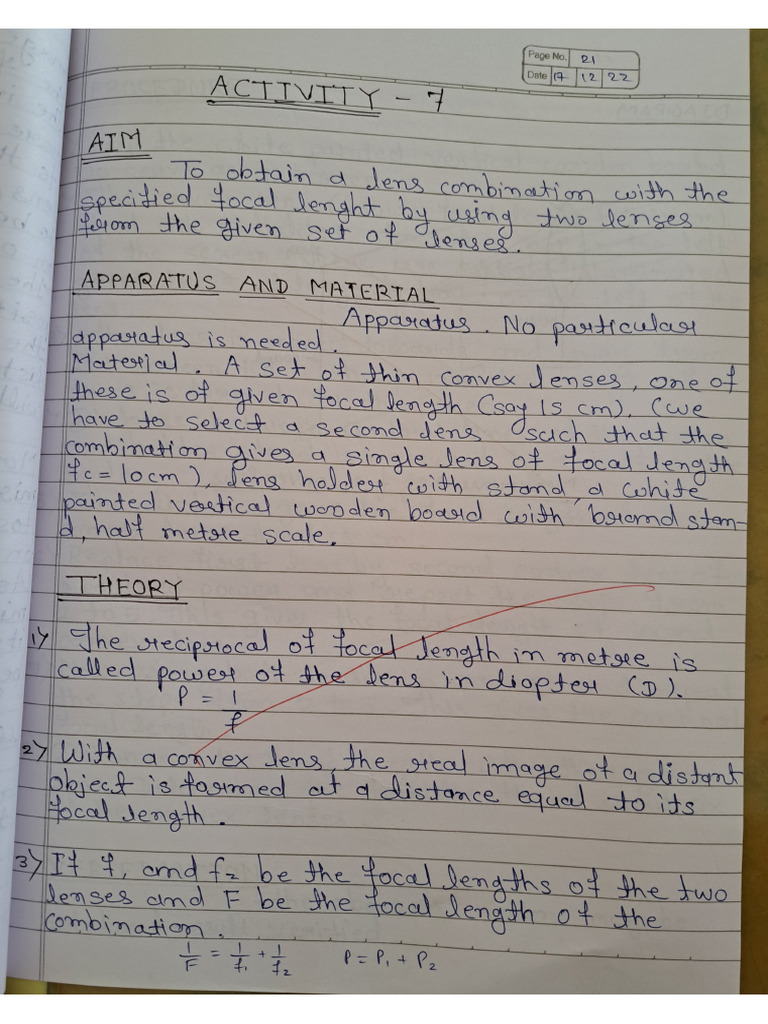 Page No. 21
Date 17 12 22
ACTIVITY - 7
AIM
To obtain a lens combination with the
specified focal lenght by using two lenses
from the given set of lenses.
APPARATUS AND MATERIAL
Apparatus. No particular
apparatus is needed.
Material. A set of thin convex lenses, one of
these is of given focal length (say 15 cm). (we
have to select a second lens such that the
combination gives a single lens of focal length
fc = 10cm), lens holder with stand, a white
painted vertical wooden board with broad stan-
d, half metre scale.
THEORY
1) The reciprocal of focal length in metre is
called power of the lens in diopter (D).
P = 1/f
2) With a convex lens, the real image of a distant
object is formed at a distance equal to its
focal length.
3) If f1 and f2 be the focal lengths of the two
lenses and F be the focal length of the
combination.
1/F = 1/f1 + 1/f2 P = P1 + P2